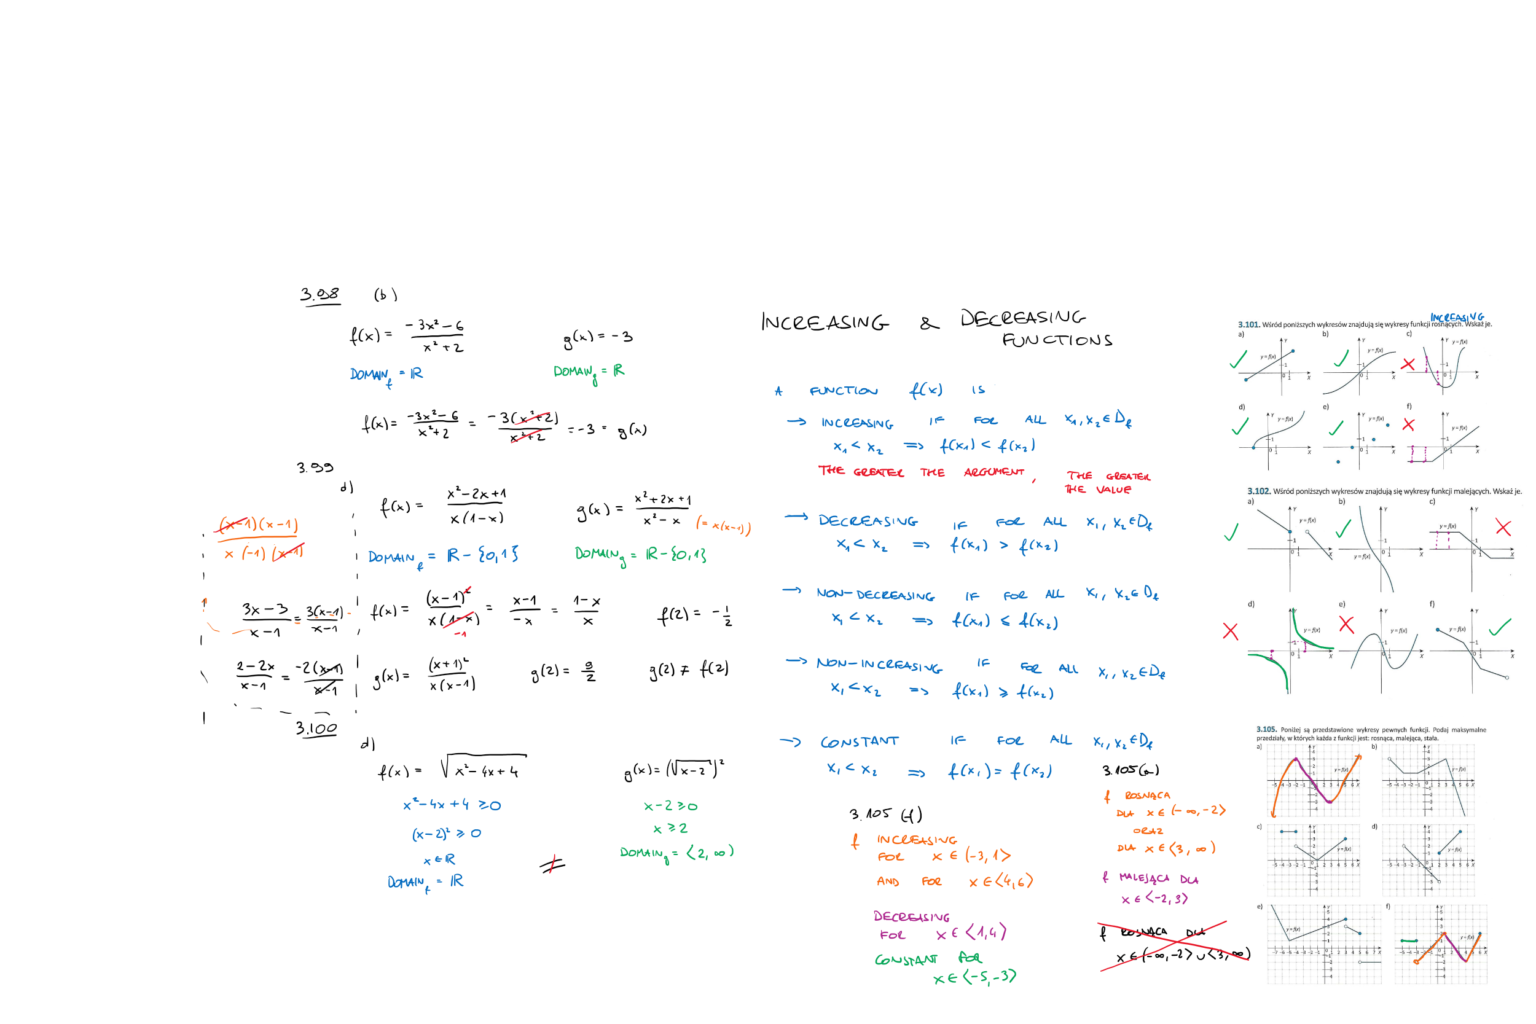 3.98 (b)
f(x) = (-3x²-6)/(x²+2)
g(x) = -3
DOMAIN_f = ℝ
DOMAIN_g = ℝ
f(x) = (-3x²-6)/(x²+2) = (-3(x²+2))/(x²+2) = -3 = g(x)
3.99
d)
f(x) = (x²-2x+1)/(x(1-x))
g(x) = (x²+2x+1)/(x²-x) (= x(x-1))
DOMAIN_f = ℝ-{0,1}
DOMAIN_g = ℝ-{0,1}
(x-1)(x-1)/(x(-1)(x-1))
(3x-3)/(x-1) = 3(x-1)/(x-1)
(2-2x)/(x-1) = -2(x-1)/(x-1)
f(x) = (x-1)²/(x(1-x)) = (x-1)/(-x) = (1-x)/x
-1
f(2) = -1/2
g(x) = (x+1)²/(x(x-1))
g(2) = 9/2
g(2) ≠ f(2)
3.100
d)
f(x) = √(x²-4x+4)
g(x) = (√(x-2))²
x²-4x+4 ≥ 0
(x-2)² ≥ 0
x ∈ ℝ
DOMAIN_f = ℝ
≠
x-2 ≥ 0
x ≥ 2
DOMAIN_g = ⟨2, ∞)
INCREASING & DECREASING
FUNCTIONS
A FUNCTION f(x) IS
→ INCREASING IF FOR ALL x₁, x₂ ∈ D_f
x₁ < x₂ ⇒ f(x₁) < f(x₂)
THE GREATER THE ARGUMENT, THE GREATER
THE VALUE
→ DECREASING IF FOR ALL x₁, x₂ ∈ D_f
x₁ < x₂ ⇒ f(x₁) > f(x₂)
→ NON-DECREASING IF FOR ALL x₁, x₂ ∈ D_f
x₁ < x₂ ⇒ f(x₁) ≤ f(x₂)
→ NON-INCREASING IF FOR ALL x₁, x₂ ∈ D_f
x₁ < x₂ ⇒ f(x₁) ≥ f(x₂)
→ CONSTANT IF FOR ALL x₁, x₂ ∈ D_f
x₁ < x₂ ⇒ f(x₁) = f(x₂)
3.105 (f)
f INCREASING
FOR x ∈ (-3, 1⟩
AND FOR x ∈ ⟨4, 6⟩
DECREASING
FOR x ∈ ⟨1, 4⟩
CONSTANT FOR
x ∈ ⟨-5, -3⟩
3.105 (a)
f ROSNĄCA
DLA x ∈ (-∞, -2⟩
ORAZ
DLA x ∈ ⟨3, ∞)
f MALEJĄCA DLA
x ∈ ⟨-2, 3⟩
f ROSNĄCA DLA
x ∈ (-∞, -2⟩ ∪ ⟨3, ∞)
INCREASING
3.101. Wśród poniższych wykresów znajdują się wykresy funkcji rosnących. Wskaż je.
a) b) c)
d) e) f)
3.102. Wśród poniższych wykresów znajdują się wykresy funkcji malejących. Wskaż je.
a) b) c)
d) e) f)
3.105. Poniżej są przedstawione wykresy pewnych funkcji. Podaj maksymalne
przedziały, w których każda z funkcji jest: rosnąca, malejąca, stała.
a) b)
c) d)
e) f)